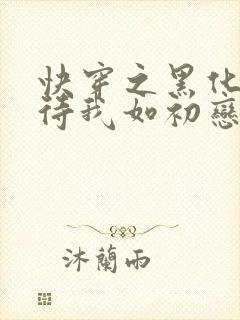 快穿之黑化
待我如初戀
沐蘭雨